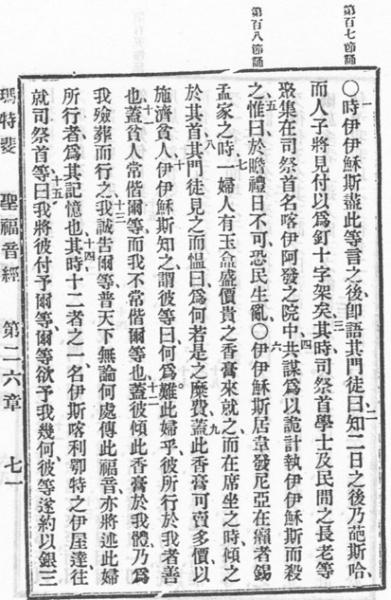 第百七節誦
第百八節誦
〇一時伊伊穌斯盡此等言之後卽語其門徒曰二知二日之後乃葩斯哈
而人子將見付以爲釘十字架矣三其時司祭首學士及民間之長老等
聚集在司祭首名喀伊阿發之院中四共謀爲以詭計執伊伊穌斯而殺
之五惟曰於瞻禮日不可恐民生亂〇六伊伊穌斯居韋發尼亞在癩者錫
孟家之時七一婦人有玉盒盛價貴之香膏來就之而在席坐之時傾之
於其首八其門徒見之而慍曰爲何若是之糜費九蓋此香膏可賣多價以
施濟貧人十伊伊穌斯知之謂彼等曰何爲難此婦乎彼所行於我者善
也十一蓋貧人常偕爾等而我不常偕爾等也十二蓋彼傾此香膏於我體乃爲
我殮葬而行之十三我誠告爾等普天下無論何處傳此福音亦將述此婦
所行者爲其記憶也十四其時十二者之一名伊斯喀利鄂特之伊屋達往
就司祭首等十五曰我將彼付予爾等爾等欲予我幾何彼等遂約以銀三
瑪特斐 聖福音經 第二六章 七一